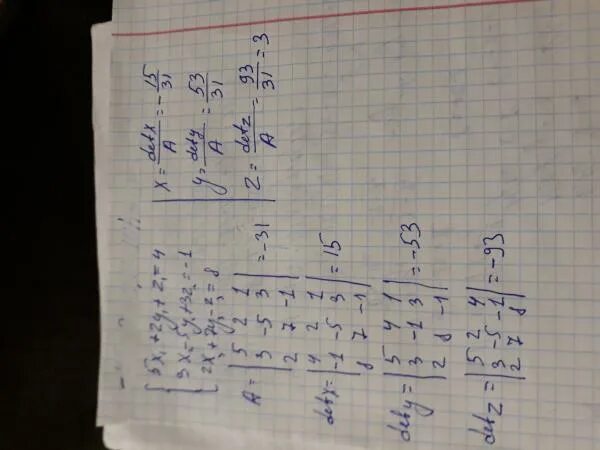 5x₁+2y₁+z₁=4
3x₁-5y₁+3z₁=-1
2x₁+7y₁-z₁=8
A = | 5 2 1 |
| 3 -5 3 | = -31
| 2 7 -1 |
detx = | 4 2 1 |
| -1 -5 3 | = 15
| 8 7 -1 |
dety = | 5 4 1 |
| 3 -1 3 | = -53
| 2 8 -1 |
detz = | 5 2 4 |
| 3 -5 -1 | = -93
| 2 7 8 |
x = detx/A = -15/31
y = dety/A = 53/31
z = detz/A = 93/31 = 3